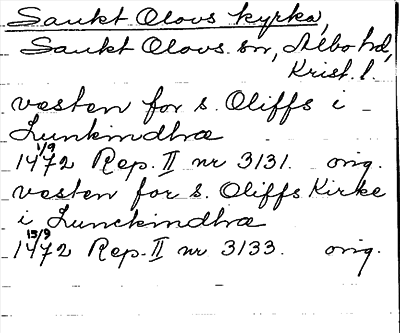 Sankt Olovs kyrka,
Sankt Olovs sn, Albo hd,
Krist. l.
västen for s. Oliffs i
Lunkindhræ
1/9
1472 Rep. II nr 3131. orig.
vesten for s. Oliffs Kirke
i Lunckindhræ
15/9
1472 Rep. II nr 3133. orig.